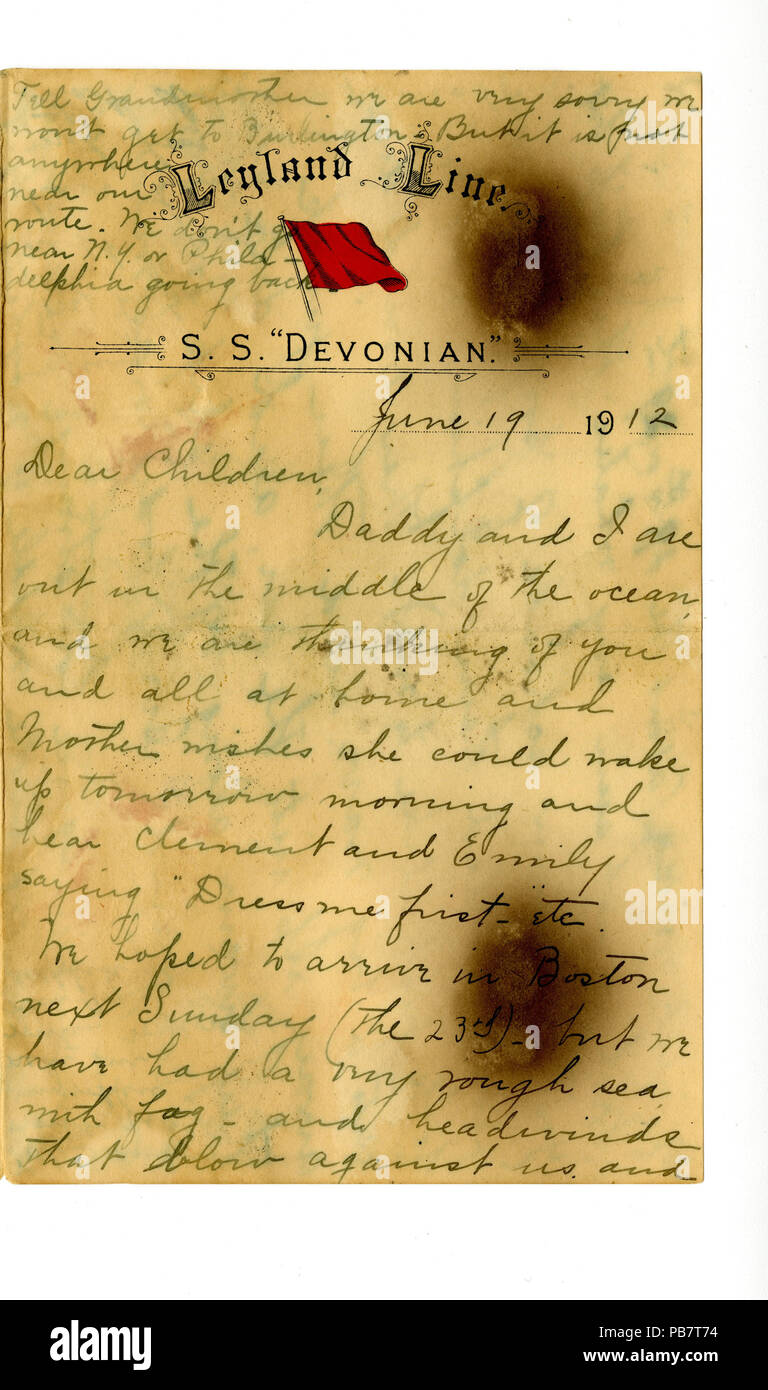 Tell Grandmother we are very sorry we
won't get to Burlington - But it is not
anywhere
near our
route. We don't go
near N.Y. or Phila-
delphia going back -
Leyland Line.
S. S. "DEVONIAN."
June 19 1912
Dear Children,
Daddy and I are
out in the middle of the ocean,
and we are thinking of you
and all at home and
Mother wishes she could wake
up tomorrow morning and
hear Clement and Emily
saying "Dress me first-" etc.
We hoped to arrive in Boston
next Sunday (the 23rd) - but we
have had a very rough sea
with fog - and headwinds
that blow against us and
alamy
Image ID: PB7T74
www.alamy.com